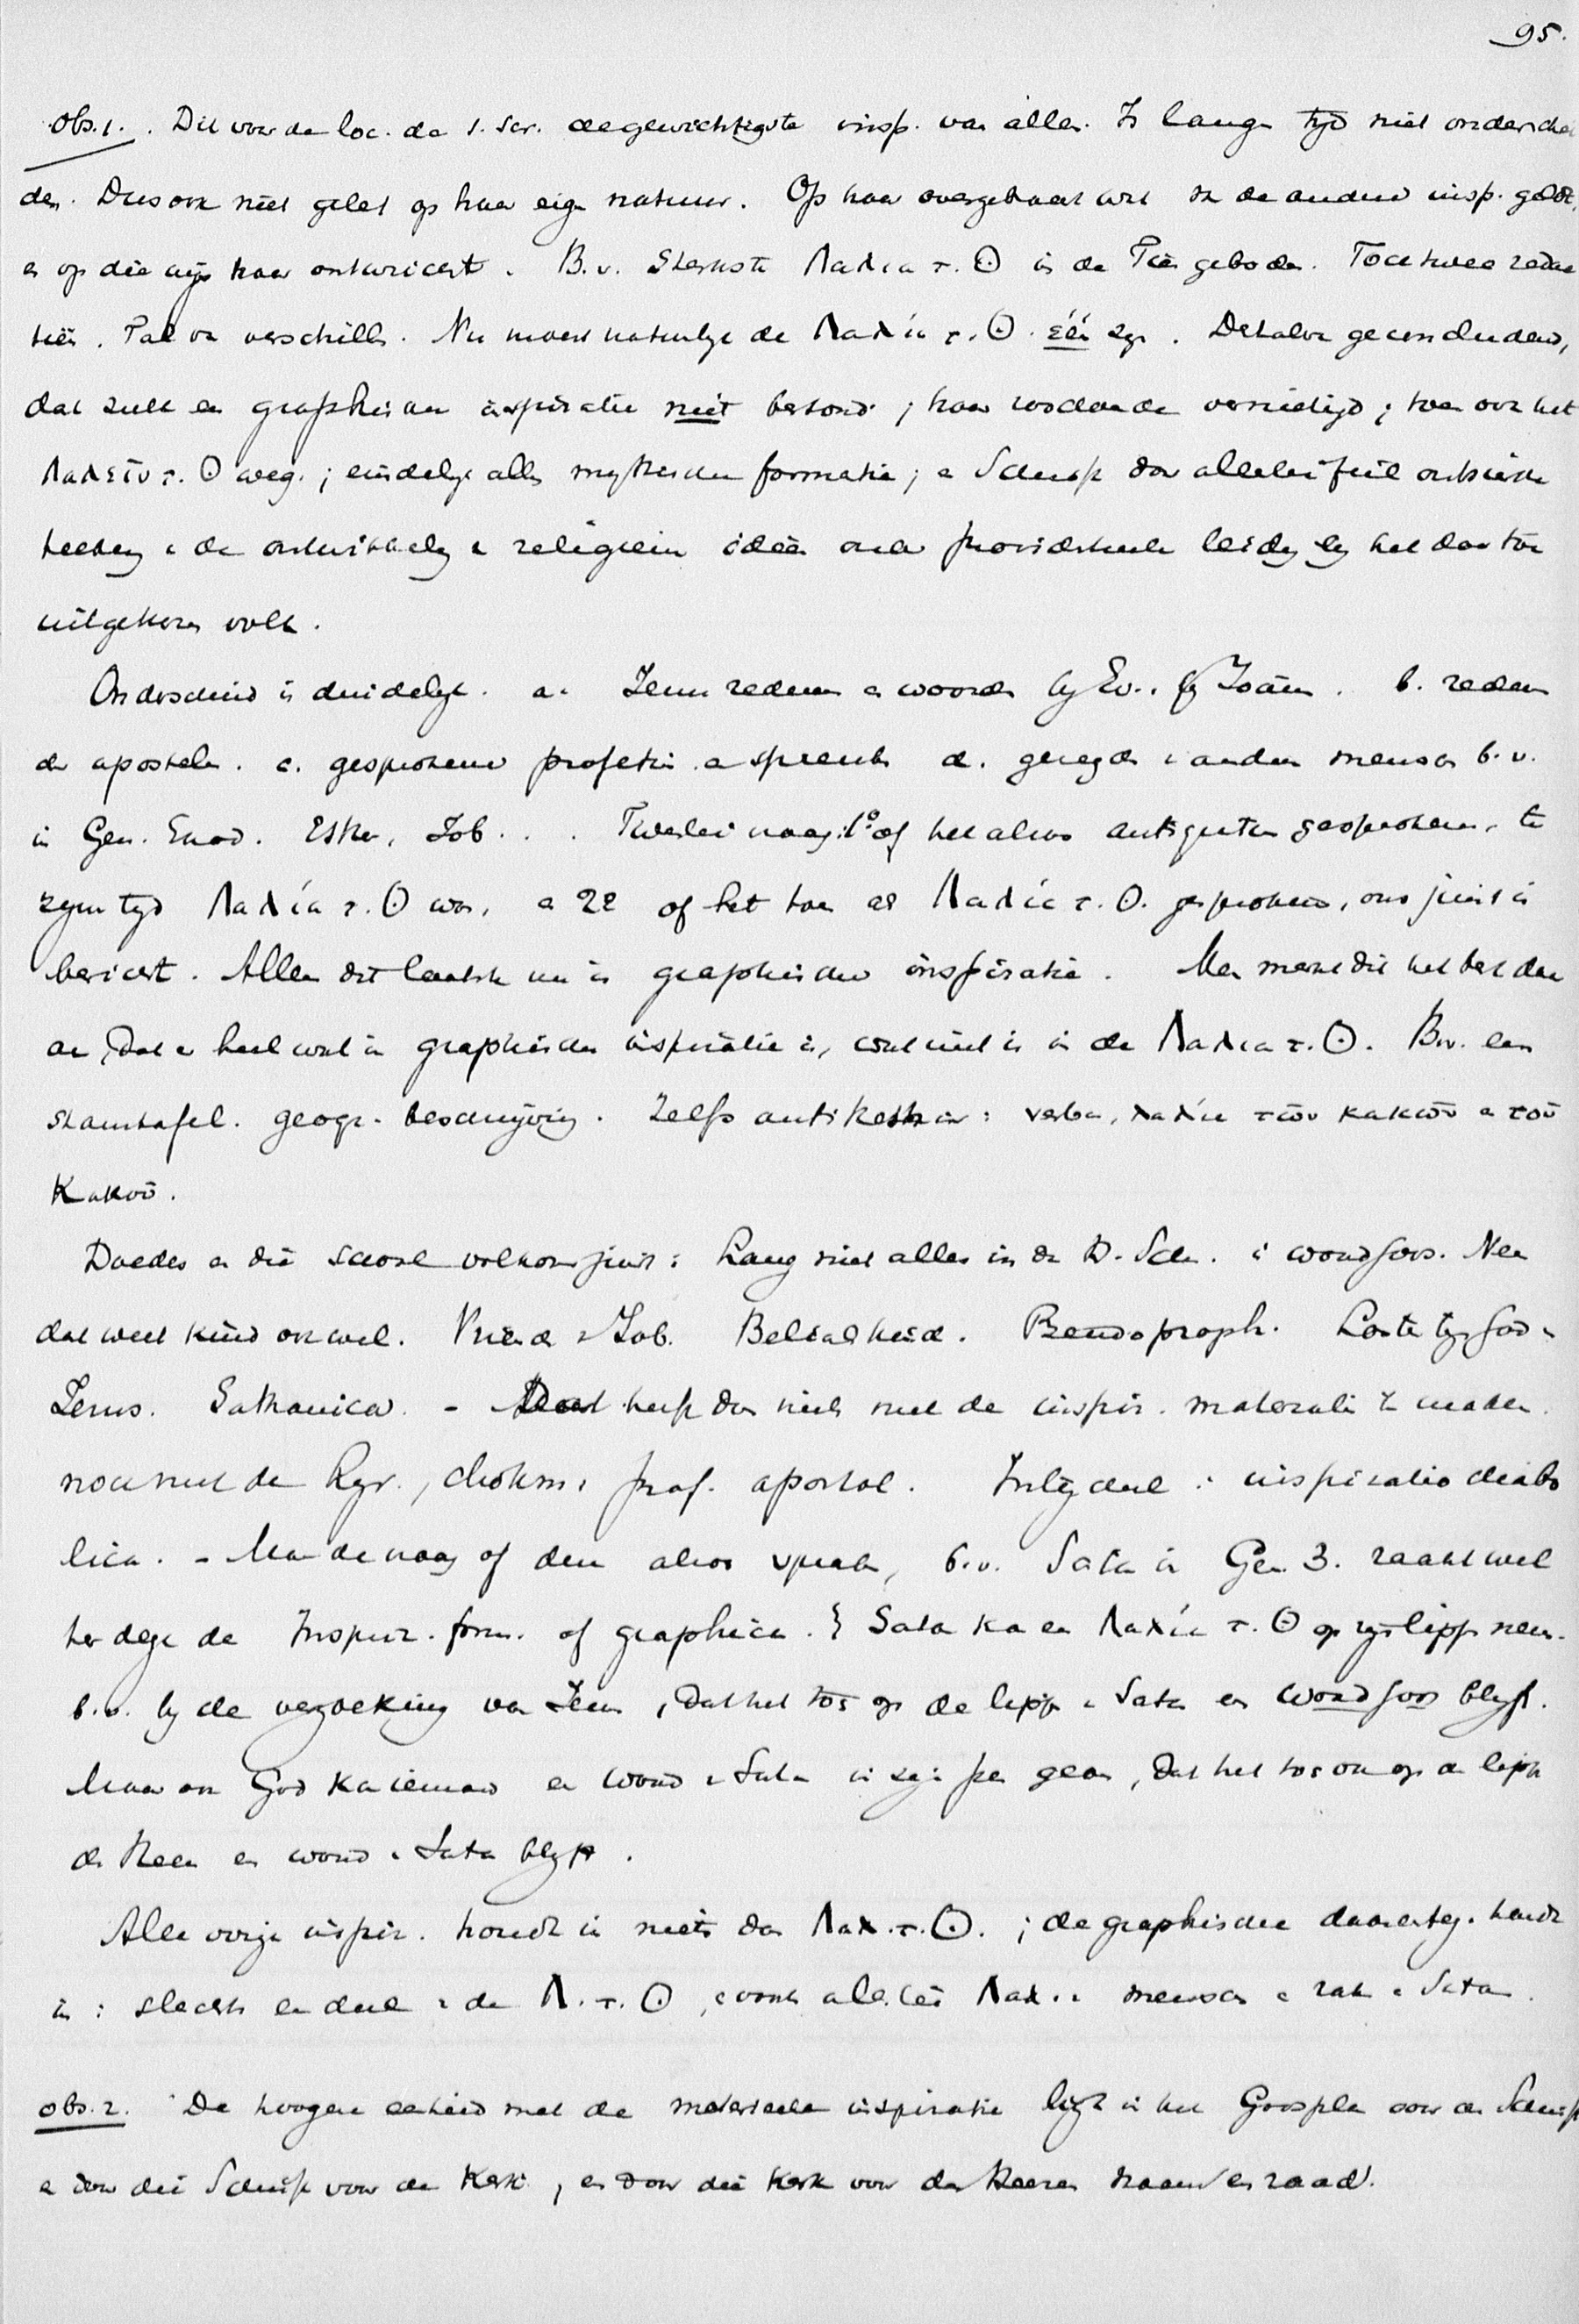 95.
Obs. 1. Dit voor de loc. de s. scr. de gewichtigste insp. van allen. Is lange tijd niet onderschei
den. Dus ook niet gelet op haar eigen natuur. Op haar overgebracht wat van de andere insp. geldt,
en op die wijs haar ontwricht. B.v. Sterkste Λαλια τ. Θ in de Tien geboden. Toch twee redac
tiën. Tal van verschillen. Nu moest natuurlijk de Λαλία τ. Θ. één zijn. Derhalve geconcludeerd,
dat zulk een graphische inspiratie niet bestond; haar loochende verdedigd; toen ook het
Λαλεῖν τ. Θ weg.; eindelijk alles mythische formatie; en Schrift door allerlei feil ontsierde
de ontwikkeling religieuse ideën onder providentieele leiding bij het daartoe
uitgekoren volk.
Onderscheid is duidelijk. a. Jezus redenen en woorden bij Ev. bij Joan. b. redenen
der apostelen. c. gesproken profetie en spreuk d. gezegden van andere menschen b.v.
in Gen. Exod. Esther, Job... Tweeërlei vraag: 1° of het aldus gesprokene, te
zijner tijd Λαλία τ. Θ was, en 2e of het toen als Λαλία τ. Θ. gesprokene, ons juist is
bericht. Alleen dit laatste nu is graphische inspiratie. Men merkt dit het best daar
aan, dat er heel wat in graphische inspiratie is, wat niet is in de Λαλια τ. Θ. B.v. een
stamtafel. geogr. beschrijving. Zelfs antithetisch: verba, λαλία τῶν κακῶν en τοῦ
Κακοῦ.
Doedes en die school volkomen juist: Lang niet alles in de H. Schr. is woord Gods. Nu
dat weet kind ook wel. Vriend v Job. Belialskind. Pseudoproph. Lastertaal tegen God en
Jezus. Sathanica. - Doch heeft dan niets met de inspir. materialis te maken.
noch met de lyr., chokm. prof. apostol. Integendeel: inspiratio diabo
lica. - Maar de vraag of deze aldus sprak, b.v. Satan in Gen. 3. raakt wel
ter dege de Inspir. form. of graphica. Satan kan een Λαλία τ. Θ op zijn lippen nemen.
b.v. bij de verzoeking van Jezus, dat het toch op de lippen v Satan een woord Gods blijft.
Maar ook God kan iemand een woord v Satan in zijn pen geven, dat het toch ook op de lippen
des Heeren een woord v Satan blijft.
Alle vorige inspir. houdt in niets dan Λαλ. τ. Θ.; de graphische daarentegen houdt
in: slechts een deel v de Λ. τ. Θ, en voorts allerlei Λαλ. v menschen en zelfs v Satan.
obs. 2. De hoogere eenheid met de materieele inspiratie ligt in het Godsplan voor de Schrift
en door die Schrift voor de Kerk, en door die Kerk voor des Heeren naam en raad.